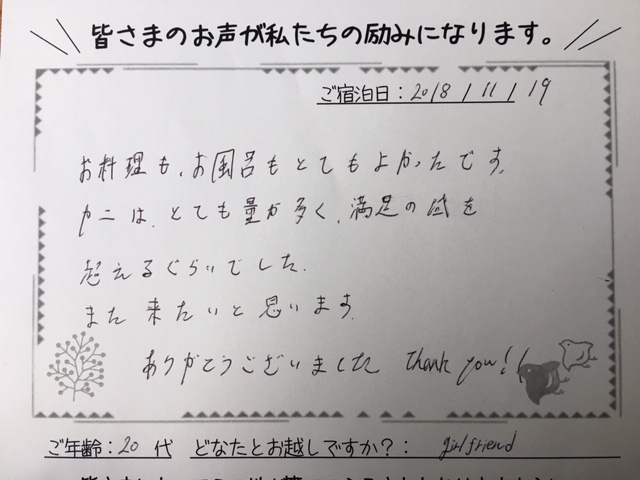 皆さまのお声が私たちの励みになります。
ご宿泊日：2018/11/19
お料理も、お風呂もとてもよかったです。
カニは、とても量が多く、満足の域を
超えるぐらいでした。
また来たいと思います。
ありがとうございました Thank you!!
ご年齢：20代 どなたとお越しですか？：girlfriend